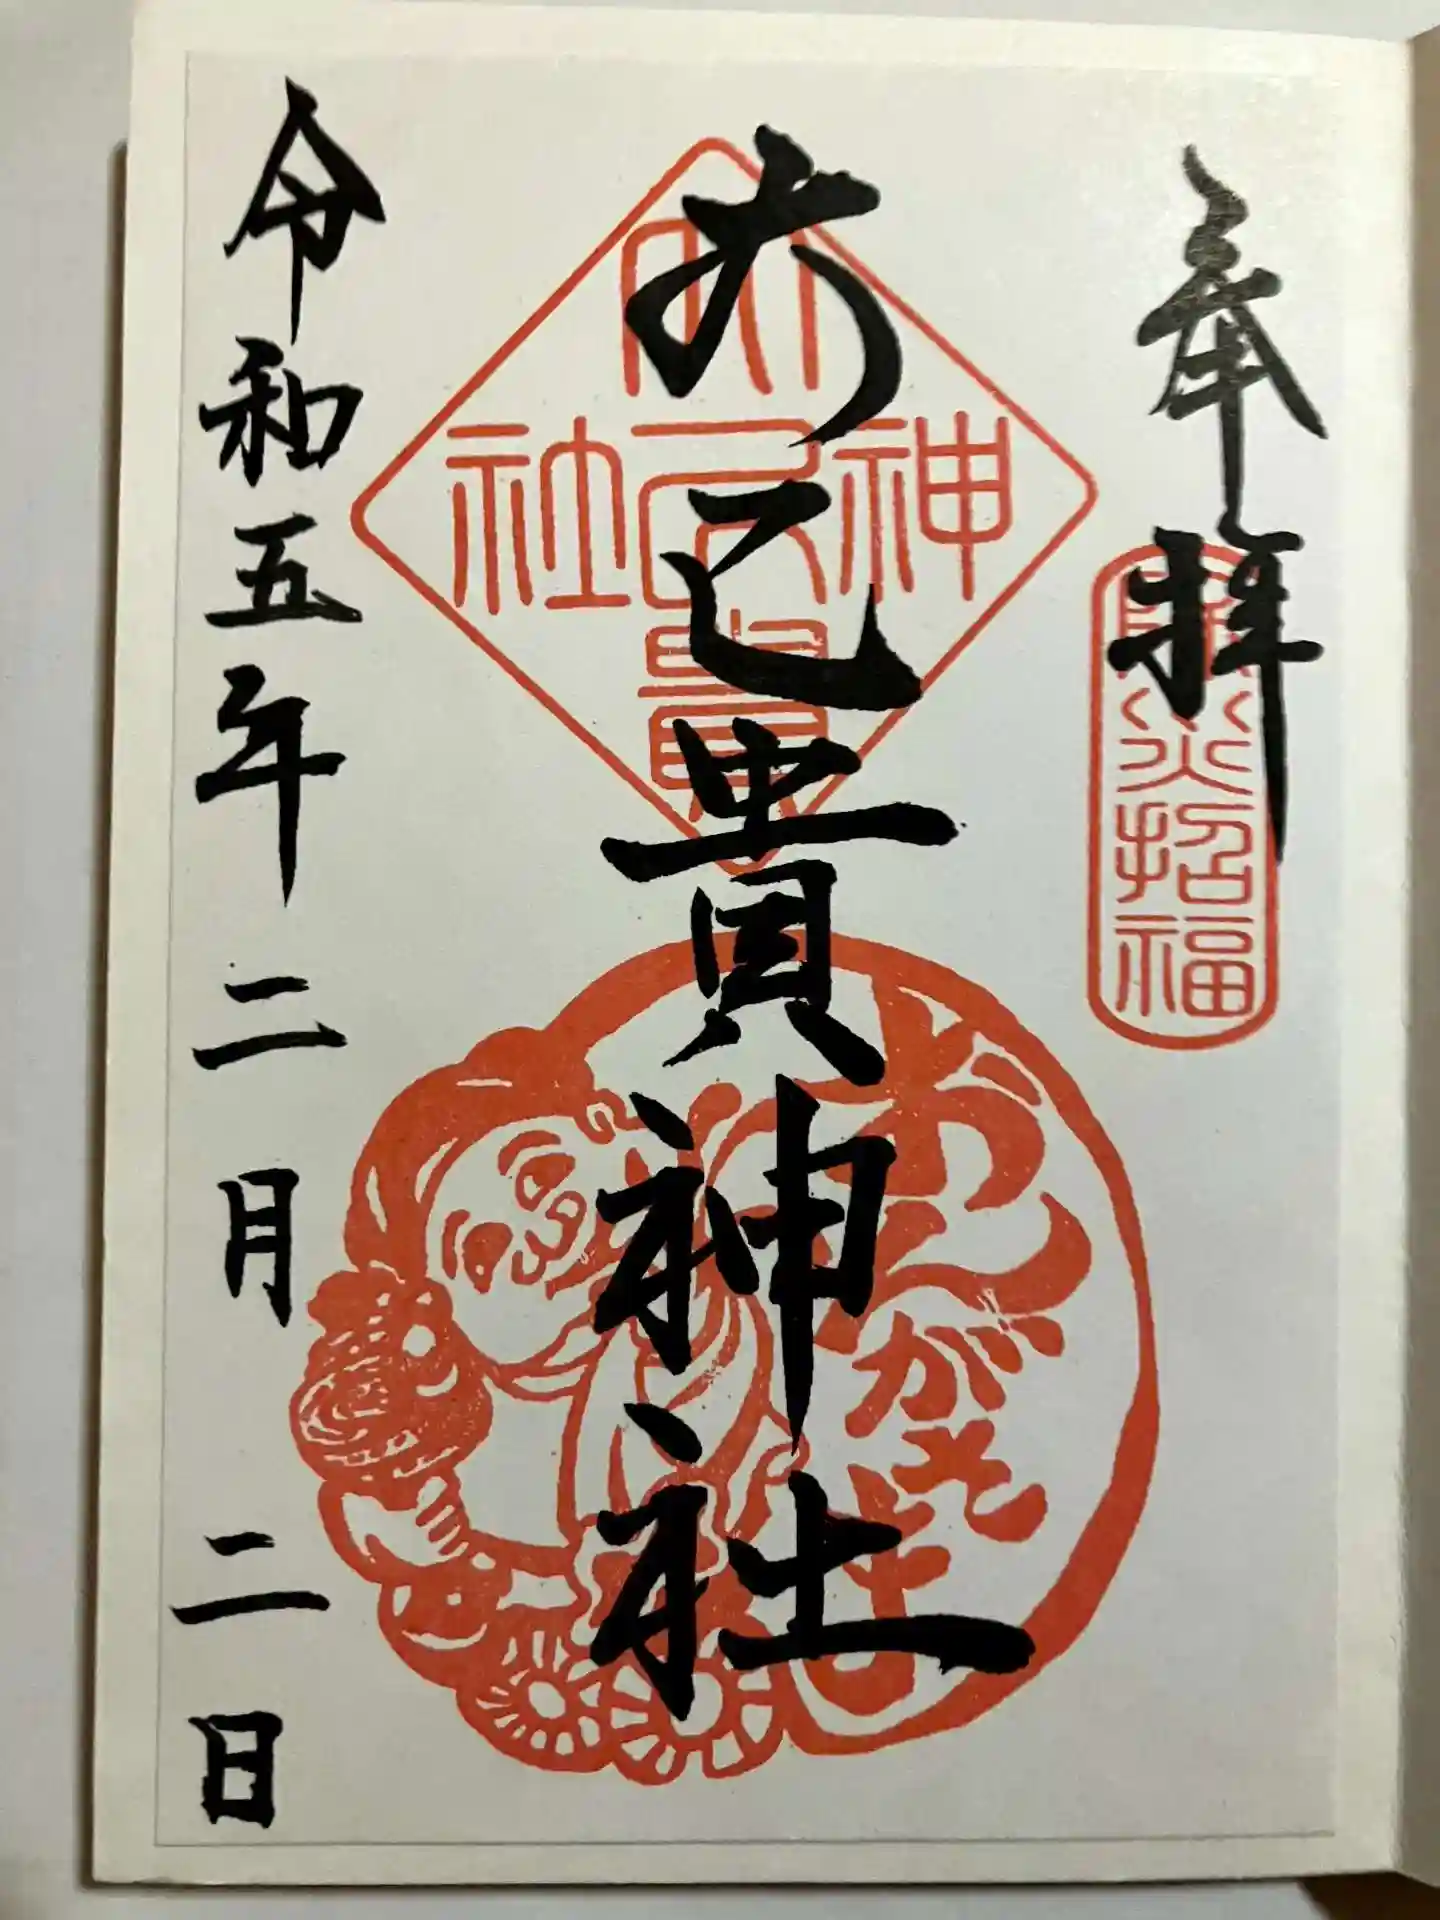 奉拝
除災招福
大己貴神社
大己貴神社
おんがさま
令和五年二月二日